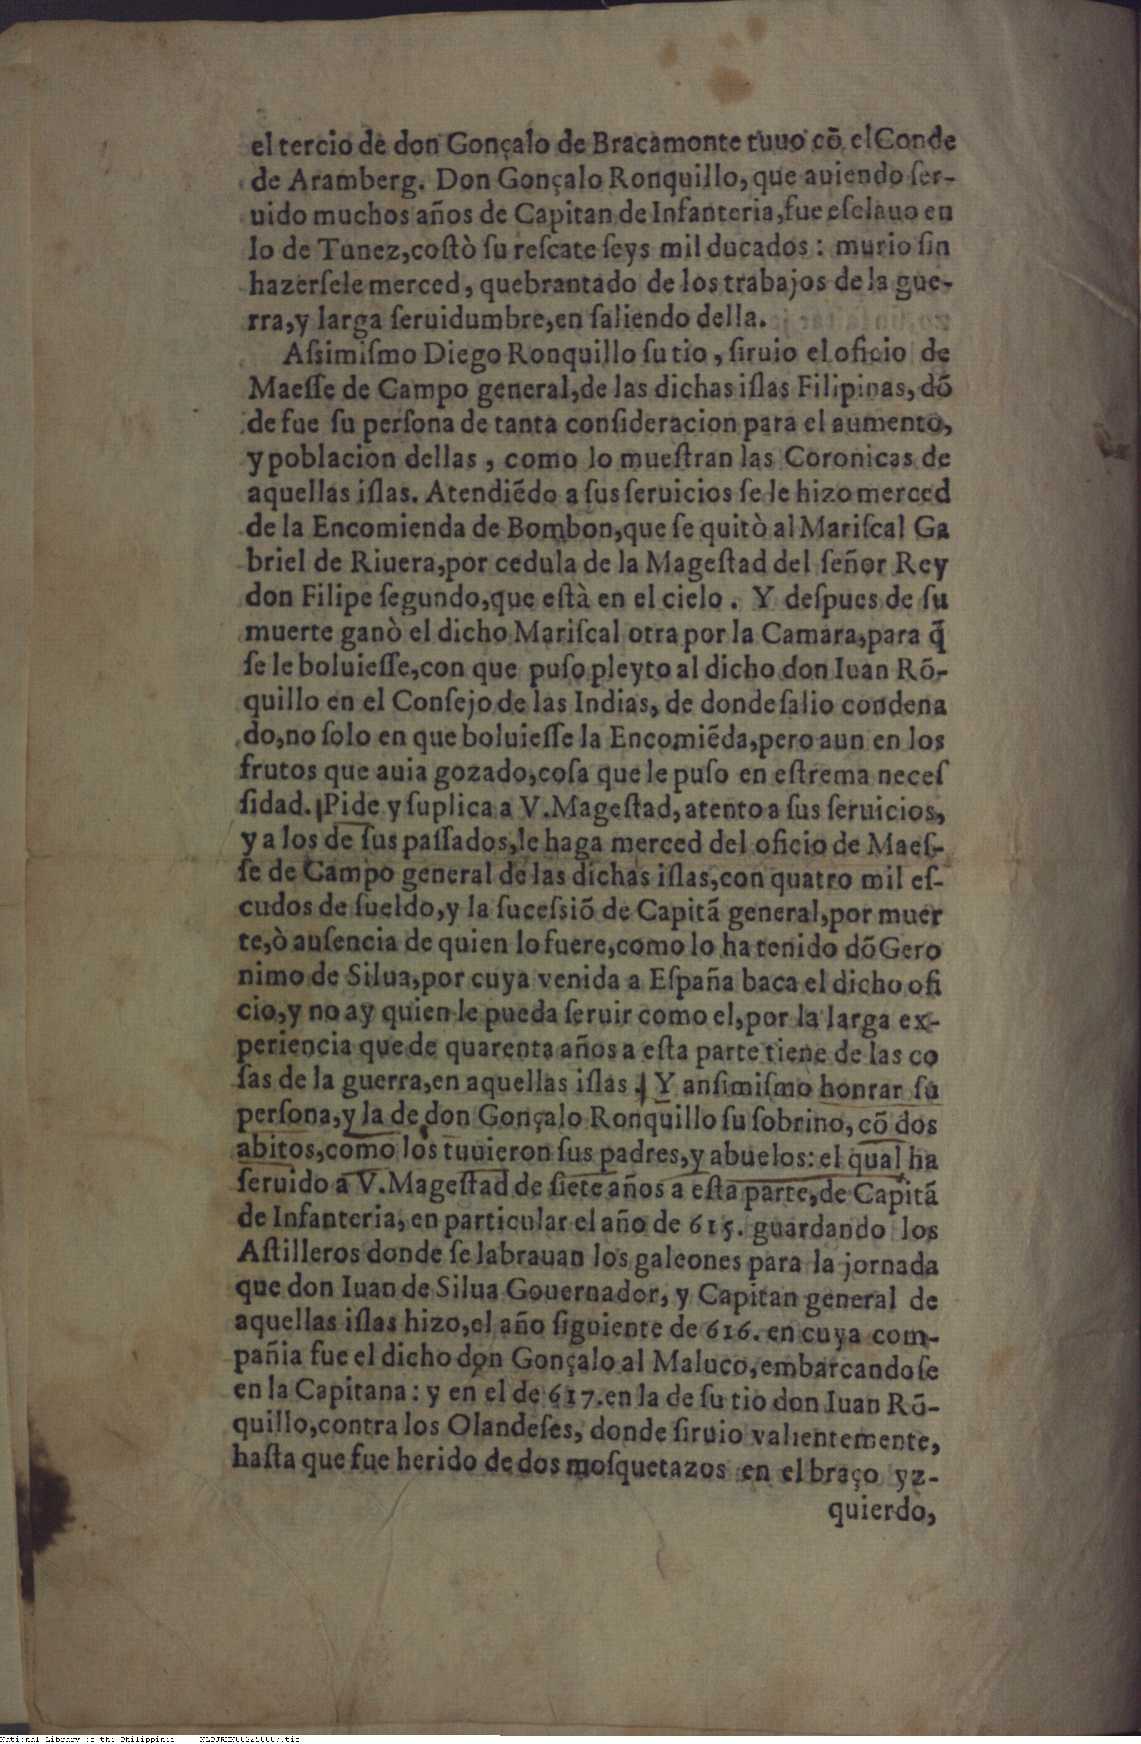 el tercio de don Gonçalo de Bracamonte tuuo cõ el Conde
de Aramberg. Don Gonçalo Ronquillo, que auiendo ſer-
uido muchos años de Capitan de Infanteria, fue eſclauo en
lo de Tunez, coſtò ſu reſcate ſeys mil ducados: murio ſin
hazerſele merced, quebrantado de los trabajos de la gue-
rra, y larga ſeruidumbre, en ſaliendo della.
Aſsimiſmo Diego Ronquillo ſu tio, ſiruio el oficio de
Maeſſe de Campo general, de las dichas iſlas Filipinas, dõ
de fue ſu perſona de tanta conſideracion para el aumento,
y poblacion dellas, como lo mueſtran las Coronicas de
aquellas iſlas. Atendiẽdo a ſus ſeruicios ſe le hizo merced
de la Encomienda de Bombon, que ſe quitò al Mariſcal Ga
briel de Riuera, por cedula de la Mageſtad del ſeñor Rey
don Filipe ſegundo, que eſtà en el cielo. Y deſpues de ſu
muerte ganò el dicho Mariſcal otra por la Camara, para q̃
ſe le boluieſſe, con que puſo pleyto al dicho don Iuan Rõ-
quillo en el Conſejo de las Indias, de donde ſalio condena
do, no ſolo en que boluieſſe la Encomiẽda, pero aun en los
frutos que auia gozado, coſa que le puſo en eſtrema neceſ
ſidad. Pide y ſuplica a V. Mageſtad, atento a ſus ſeruicios,
y a los de ſus paſſados, le haga merced del oficio de Maeſ-
ſe de Campo general de las dichas iſlas, con quatro mil eſ-
cudos de ſueldo, y la ſuceſsiõ de Capitã general, por muer
te, ò auſencia de quien lo fuere, como lo ha tenido dõ Gero
nimo de Silua, por cuya venida a Eſpaña baca el dicho ofi
cio, y no ay quien le pueda ſeruir como el, por la larga ex-
periencia que de quarenta años a eſta parte tiene de las co
ſas de la guerra, en aquellas iſlas. Y anſimiſmo honrar ſu
perſona, y la de don Gonçalo Ronquillo ſu ſobrino, cõ dos
abitos, como los tuuieron ſus padres, y abuelos: el qual ha
ſeruido a V. Mageſtad de ſiete años a eſta parte, de Capitã
de Infanteria, en particular el año de 615. guardando los
Aſtilleros donde ſe labrauan los galeones para la jornada
que don Iuan de Silua Gouernador, y Capitan general de
aquellas iſlas hizo, el año ſiguiente de 616. en cuya com-
pañia fue el dicho don Gonçalo al Maluco, embarcandoſe
en la Capitana: y en el de 617. en la de ſu tio don Iuan Rõ-
quillo, contra los Olandeſes, donde ſiruio valientemente,
haſta que fue herido de dos moſquetazos en el braço yz-
quierdo,
National Library of the Philippines